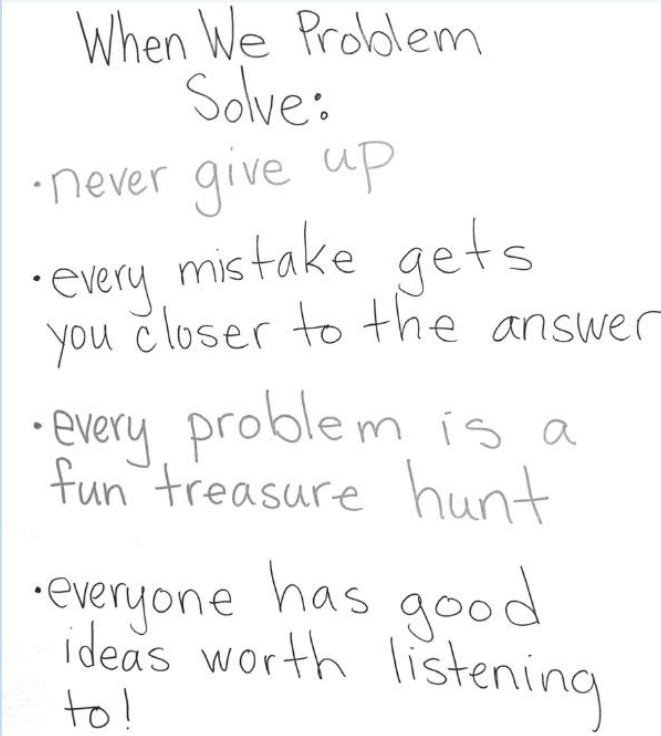 When We Problem
Solve:
·never give up
·every mistake gets
you closer to the answer
·every problem is a
fun treasure hunt
·everyone has good
ideas worth listening
to!